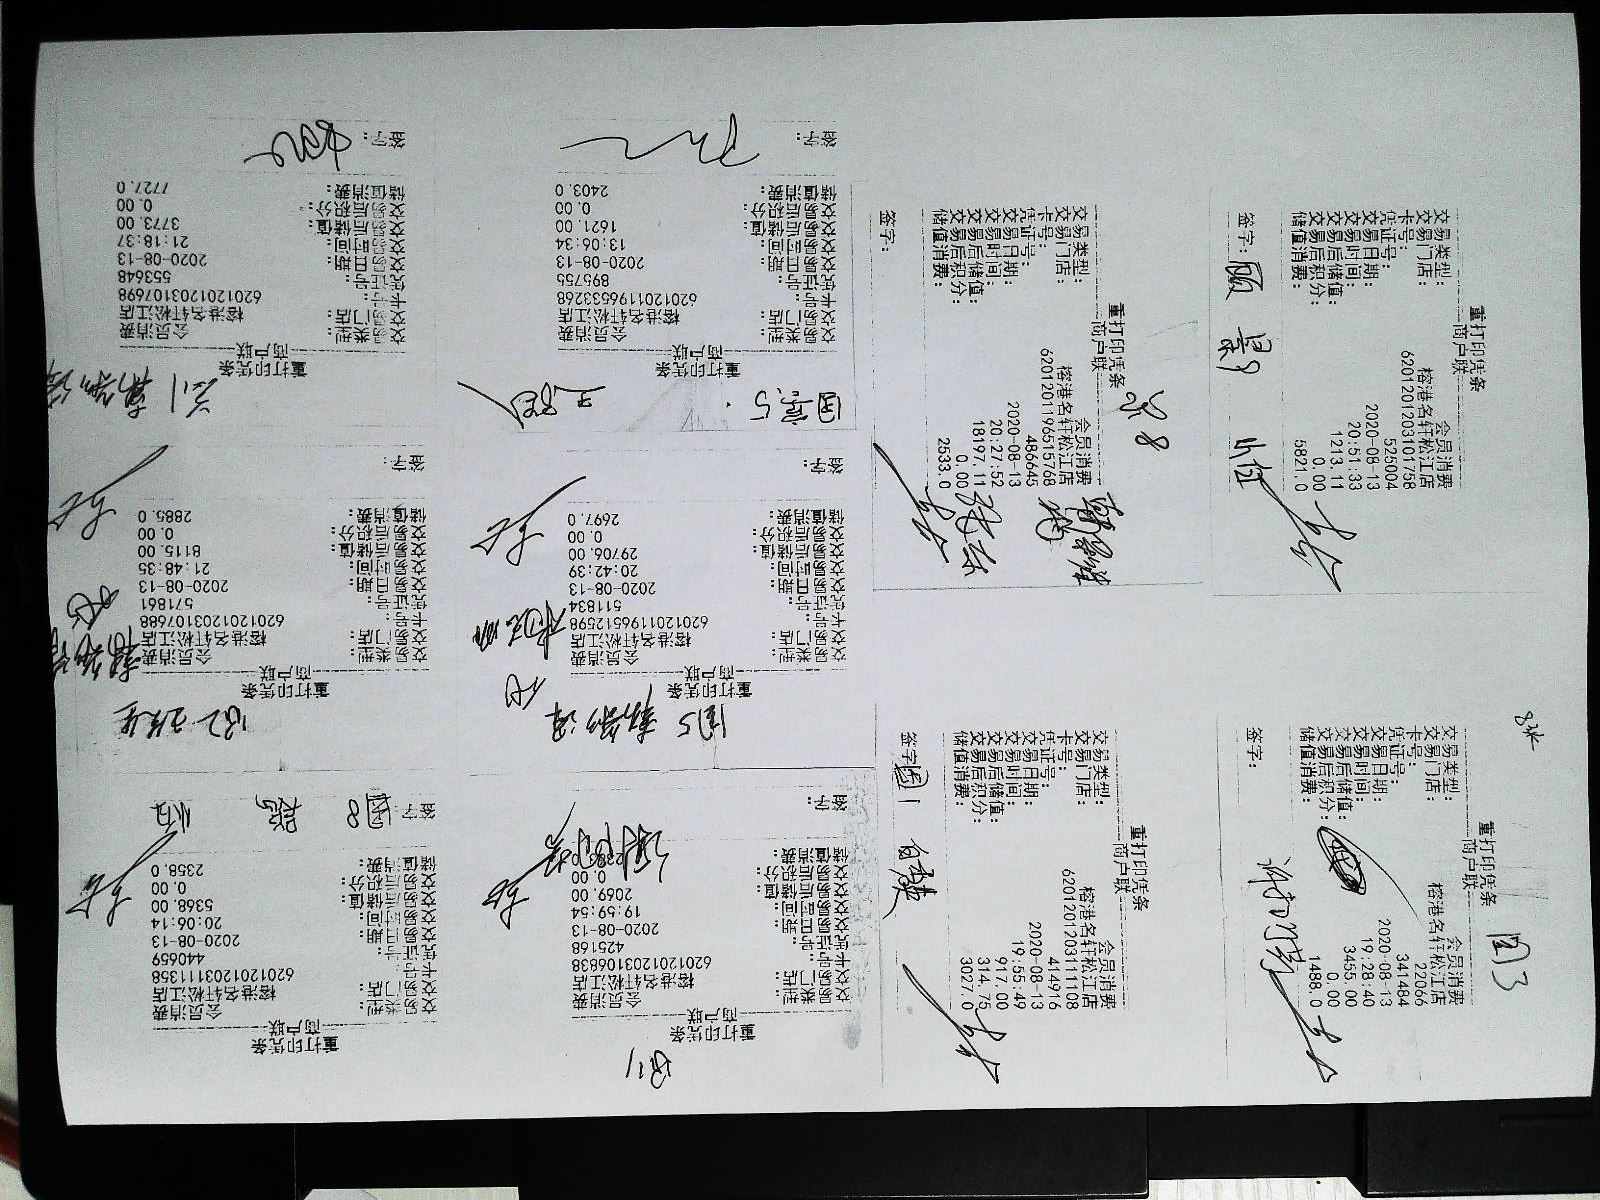 重打印凭条
商户联
交易类型: 会员消费
交易门店: 榕港名轩松江店
卡号: 6201201203107698
凭证号: 553648
交易日期: 2020-08-13
交易时间: 21:18:37
交易后储值: 3773.00
交易后积分: 0.00
储值消费: 7727.0
签字:
重打印凭条
商户联
交易类型: 会员消费
交易门店: 榕港名轩松江店
卡号: 6201201196533268
凭证号: 895755
交易日期: 2020-08-13
交易时间: 13:06:34
交易后储值: 1621.00
交易后积分: 0.00
储值消费: 2403.0
签字:
重打印凭条
商户联
交易类型: 会员消费
交易门店: 榕港名轩松江店
卡号: 6201201196515768
凭证号: 486645
交易日期: 2020-08-13
交易时间: 20:27:52
交易后储值: 18197.11
交易后积分: 0.00
储值消费: 2533.0
签字:
重打印凭条
商户联
交易类型: 会员消费
交易门店: 榕港名轩松江店
卡号: 6201201203101758
凭证号: 525004
交易日期: 2020-08-13
交易时间: 20:51:33
交易后储值: 1213.11
交易后积分: 0.00
储值消费: 5821.0
签字:
重打印凭条
商户联
交易类型: 会员消费
交易门店: 榕港名轩松江店
卡号: 6201201203107688
凭证号: 571861
交易日期: 2020-08-13
交易时间: 21:48:35
交易后储值: 8115.00
交易后积分: 0.00
储值消费: 2885.0
签字:
重打印凭条
商户联
交易类型: 会员消费
交易门店: 榕港名轩松江店
卡号: 6201201196512598
凭证号: 511834
交易日期: 2020-08-13
交易时间: 20:42:39
交易后储值: 29706.00
交易后积分: 0.00
储值消费: 2697.0
签字:
重打印凭条
商户联
交易类型: 会员消费
交易门店: 榕港名轩松江店
卡号: 6201201203111358
凭证号: 440659
交易日期: 2020-08-13
交易时间: 20:06:14
交易后储值: 5368.00
交易后积分: 0.00
储值消费: 2358.0
签字: 国8
重打印凭条
商户联
交易类型: 会员消费
交易门店: 榕港名轩松江店
卡号: 6201201203106838
凭证号: 425168
交易日期: 2020-08-13
交易时间: 19:59:54
交易后储值: 2069.00
交易后积分: 0.00
储值消费:
签字:
重打印凭条
商户联
交易类型: 会员消费
交易门店: 榕港名轩松江店
卡号: 6201201203111108
凭证号: 414916
交易日期: 2020-08-13
交易时间: 19:55:49
交易后储值: 917.00
交易后积分: 314.75
储值消费: 3027.0
签字: 国1
8张
国3
重打印凭条
商户联
交易类型: 会员消费
交易门店: 榕港名轩松江店
卡号: 222066
凭证号: 341484
交易日期: 2020-08-13
交易时间: 19:28:40
交易后储值: 3455.00
交易后积分: 0.00
储值消费: 1488.0
签字: